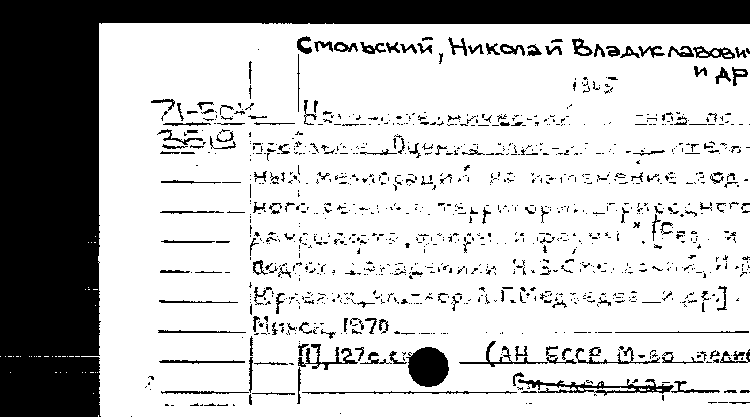 Смольский, Николай Владиславович
и др
1905
71-5СК
3519
Научно-технический прогноз по
проблеме „Оценка влияния осушитель-
ных мелиораций на изменение вод-
ного режима территории, природного
ландшафта, флоры и фауны". [Ред. и
подгот. академики Н.В.Смольский, И.Д.
Юркевич, чл.-кор. А.Г.Медведев и др.].
Минск, 1970.
[1], 127с. (АН БССР. М-во мелио
См. след. карт.